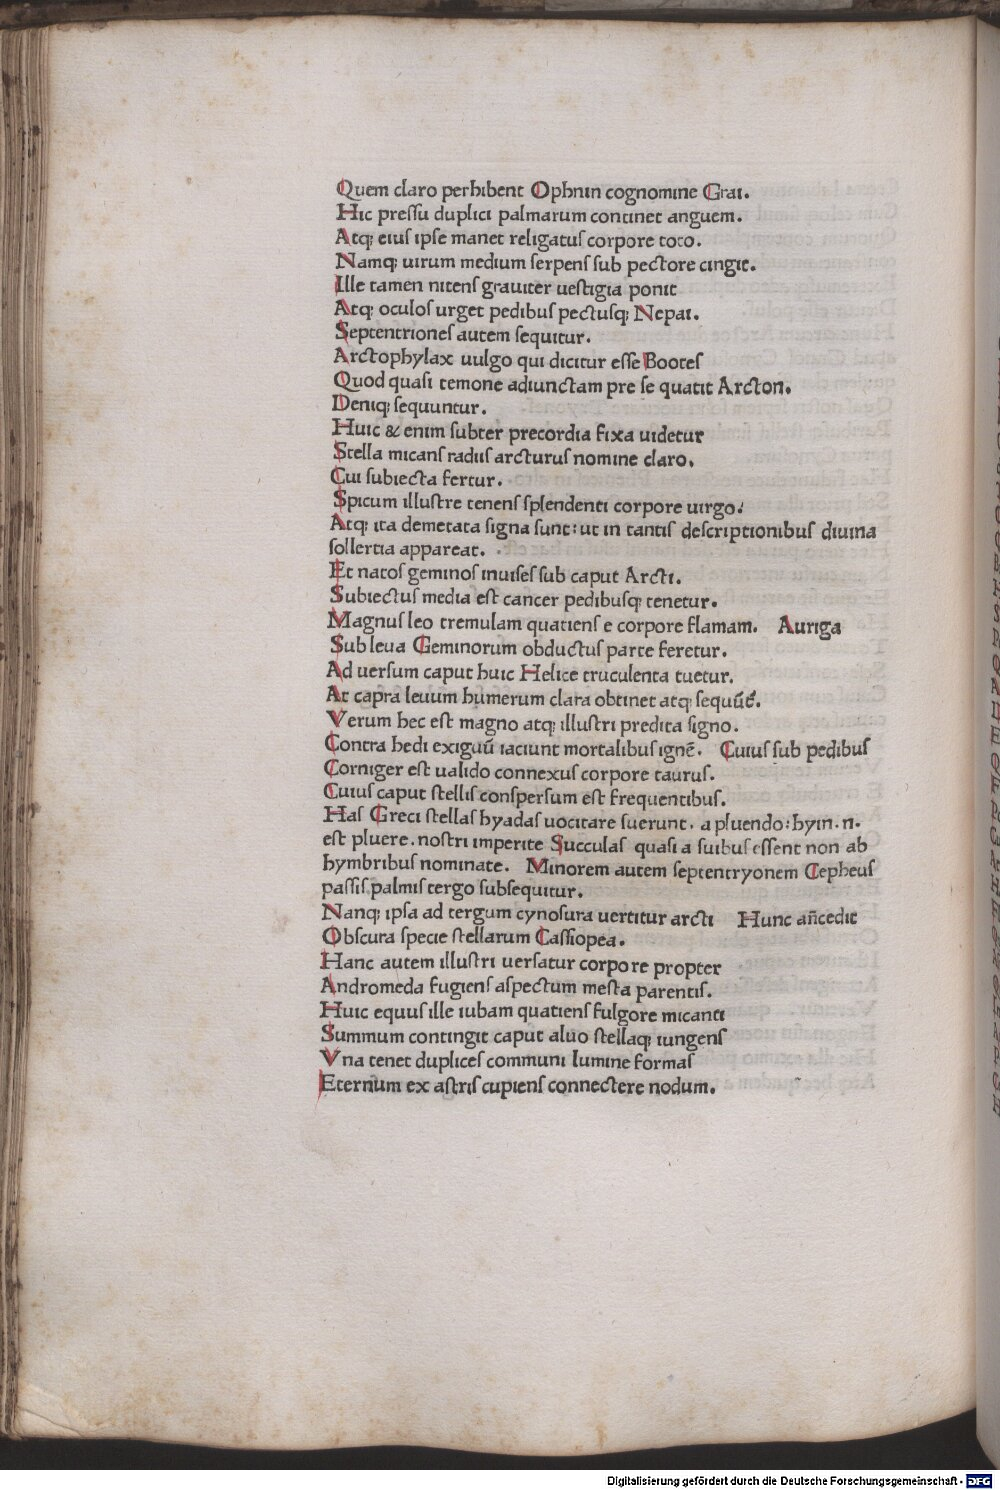 Quem claro perhibent Ophnin cognomine Grai.
Hic pressu duplici palmarum continet anguem.
Atq; eius ipse manet religatus corpore toto.
Namq; uirum medium serpens sub pectore cingit.
Ille tamen nitens grauiter uestigia ponit
Atq; oculos urget pedibus pectusq; Nepai.
Septentriones autem sequitur.
Arctophylax uulgo qui dicitur esse Bootes
Quod quasi temone adiunctam pre se quatit Arcton.
Deniq; sequuntur.
Huic & enim subter precordia fixa uidetur
Stella micans radiis arcturus nomine claro.
Cui subiecta fertur.
Spicum illustre tenens splendenti corpore uirgo.
Atq; ita demetata signa sunt: ut in tantis descriptionibus diuina
sollertia appareat.
Et natos geminos inuises sub caput Arcti.
Subiectus media est cancer pedibusq; tenetur.
Magnus leo tremulam quatiens e corpore flamam. Auriga
Sub leua Geminorum obductus parte feretur.
Ad uersum caput huic Helice truculenta tuetur.
At capra leuum humerum clara obtinet atq; sequūt̃.
Verum hec est magno atq; illustri predita signo.
Contra hedi exiguū iaciunt mortalibus ignē. Cuius sub pedibus
Corniger est ualido connexus corpore taurus.
Cuius caput stellis conspersum est frequentibus.
Has Greci stellas hyadas uocitare suerunt. a pluendo: hyin. n.
est pluere. nostri imperite Succulas quasi a suibus essent non ab
hymbribus nominate. Minorem autem septentryonem Cepheus
passis palmis tergo subsequitur.
Nanq; ipsa ad tergum cynosura uertitur arcti Hunc añcedit
Obscura specie stellarum Cassiopea.
Hanc autem illustri uersatur corpore propter
Andromeda fugiens aspectum mesta parentis.
Huic equus ille iubam quatiens fulgore micanti
Summum contingit caput aluo stellaq; iungens
Vna tenet duplices communi lumine formas
Eternum ex astris cupiens connectere nodum.
Digitalisierung gefördert durch die Deutsche Forschungsgemeinschaft - DFG